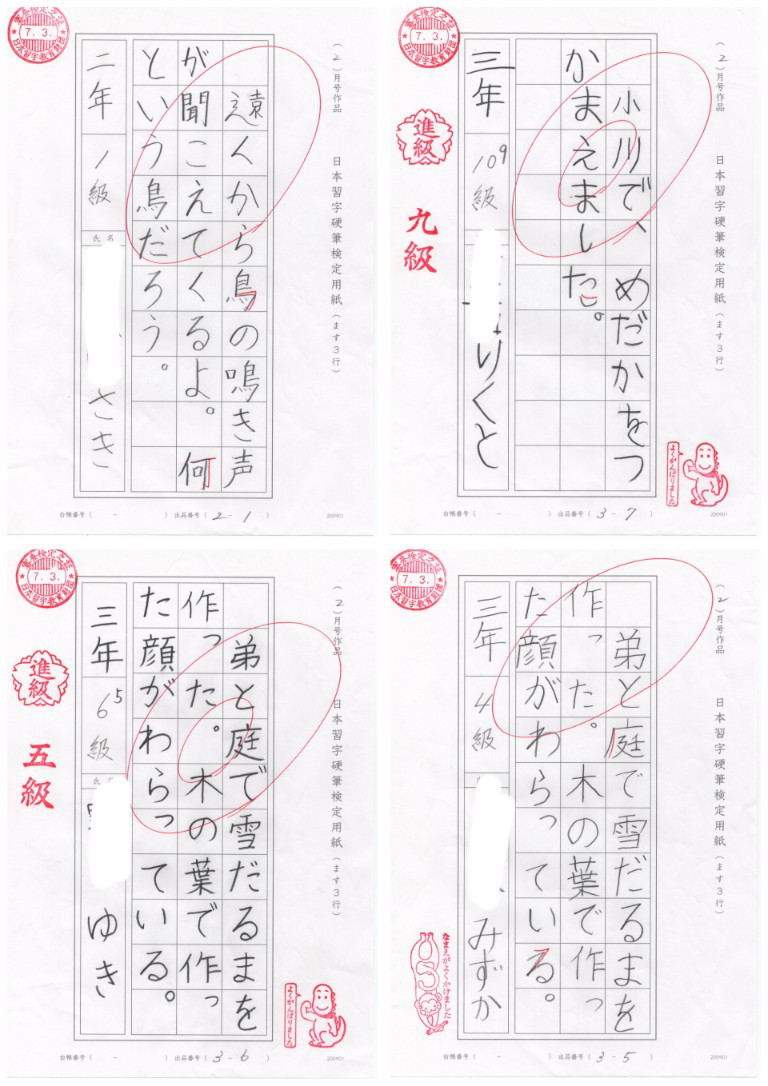 (2)月号作品
日本習字硬筆検定用紙(ます3行)
遠くから鳥の鳴き声
が聞こえてくるよ。何
という鳥だろう。
二年
1級
氏名
さき
7.3.
台帳番号( - )
出品番号( 2-1 )
200901
(2)月号作品
日本習字硬筆検定用紙(ます3行)
小川で、めだかをつ
かまえました。
三年
10 9
級
りくと
7.3.
進級
九級
よくがんばりました
台帳番号( - )
出品番号( 3-7 )
200901
(2)月号作品
日本習字硬筆検定用紙(ます3行)
弟と庭で雪だるまを
作った。木の葉で作っ
た顔がわらっている。
三年
6 5
級
ゆき
7.3.
進級
五級
よくがんばりました
台帳番号( - )
出品番号( 3-6 )
200901
(2)月号作品
日本習字硬筆検定用紙(ます3行)
弟と庭で雪だるまを
作った。木の葉で作っ
た顔がわらっている。
三年
4級
みずか
7.3.
なまえがよくかけました
台帳番号( - )
出品番号( 3-5 )
200901